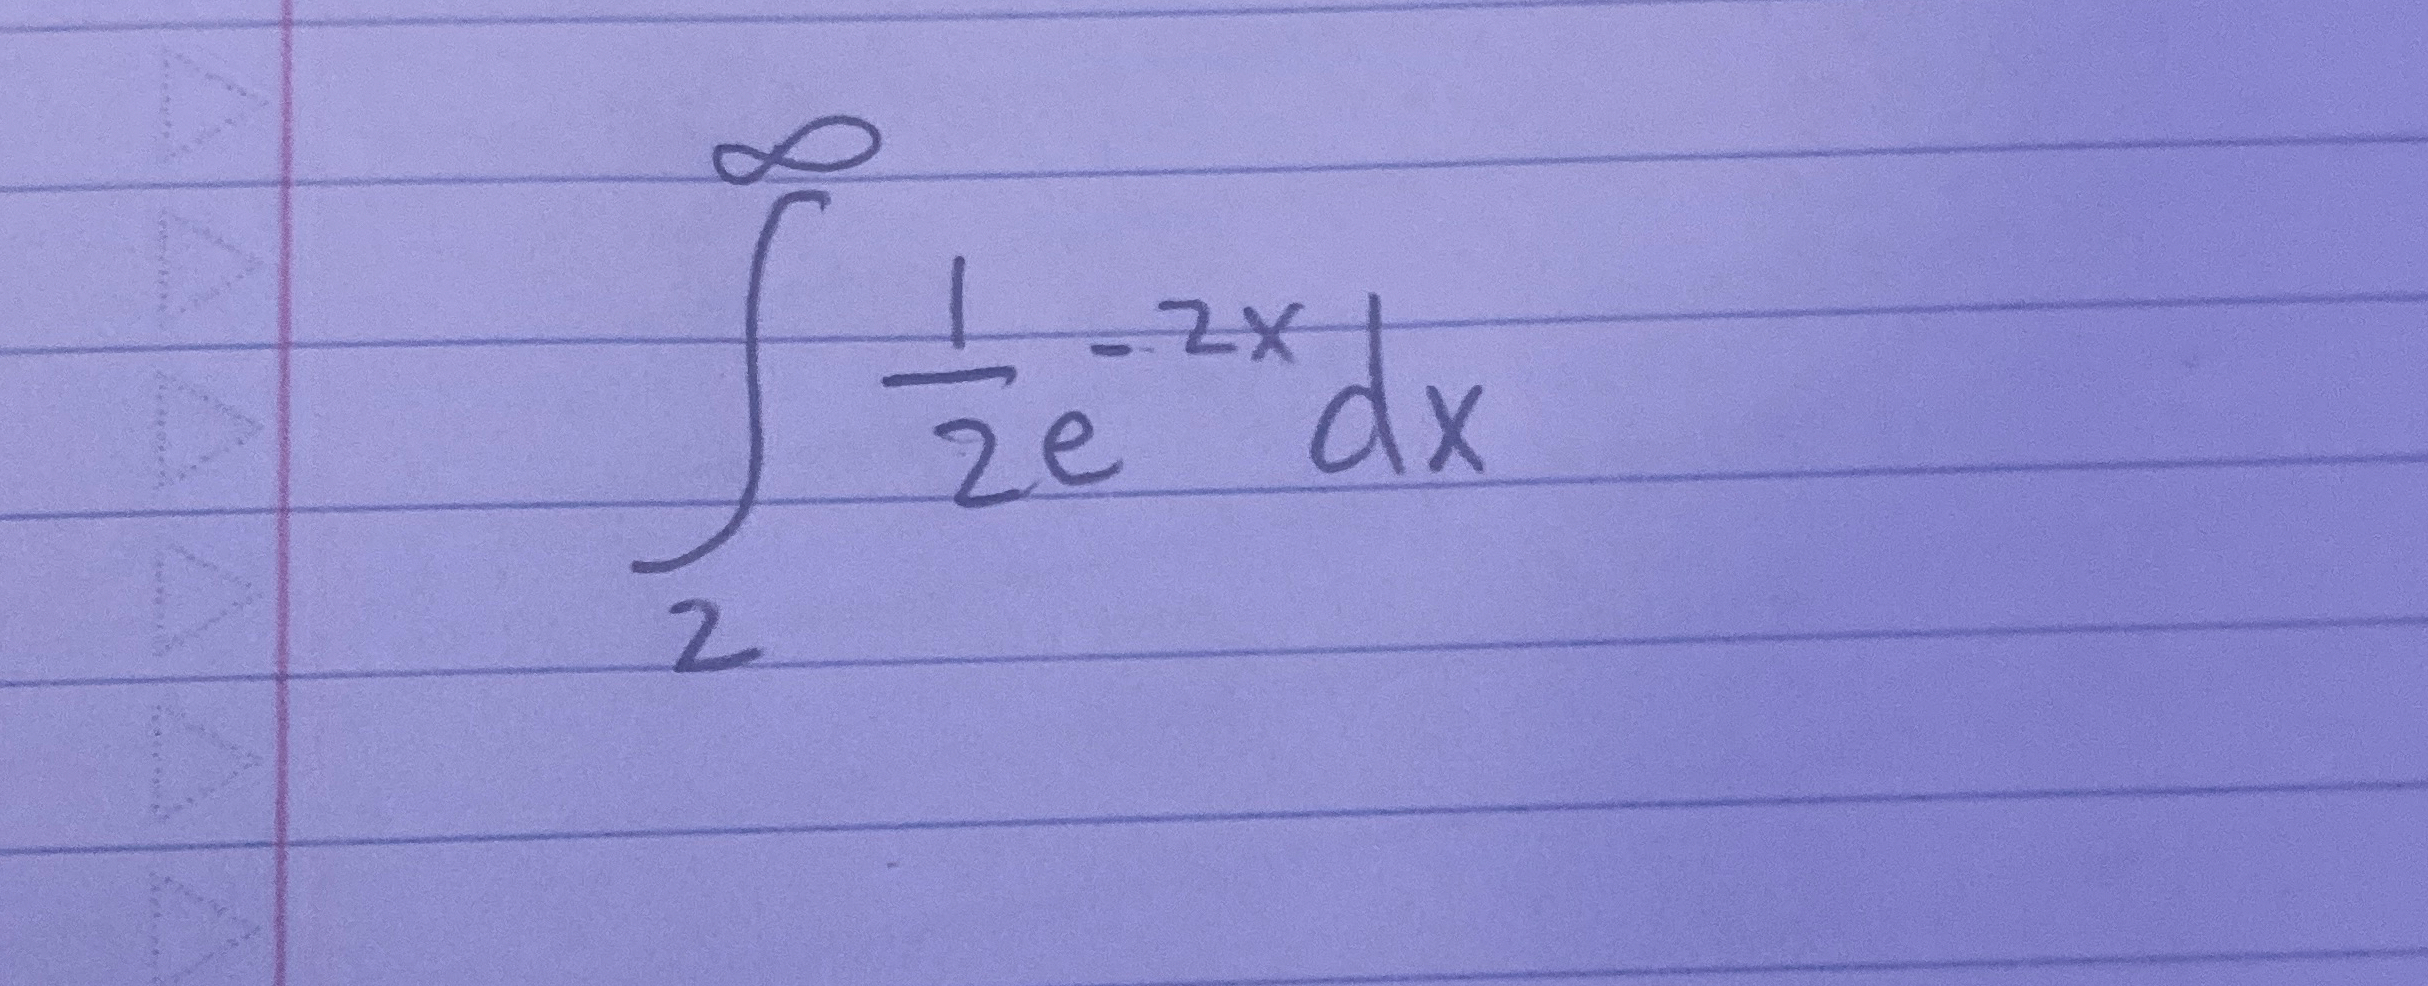 ∫_2^∞ \frac{1}{2} e^{-2x} dx